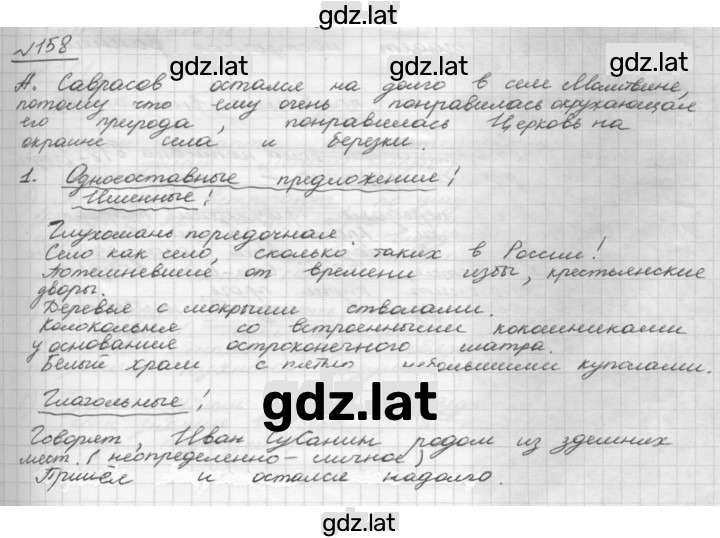 gdz.lat
№158
gdz.lat gdz.lat gdz.lat
А. Саврасов остался на долго в селе Молвитине,
потому что ему очень понравилась окружающая
его природа, понравилась Церковь на
окраине села и березки.
1. Односоставные предложение!
Именные!
Глухомань порядочная.
Село как село, сколько таких в России!
Потемневшие от времени избы, крестьянские
дворы.
Деревья с мокрыми стволами.
Колокольня со встроенными кокошниками
у основания остроконечного шатра.
Белый храм с пятью небольшими куполами.
gdz.lat
Глагольные!
Говорят, Иван Сусанин родом из здешних
мест. (неопределенно-личное)
Пришёл и остался надолго.
gdz.lat